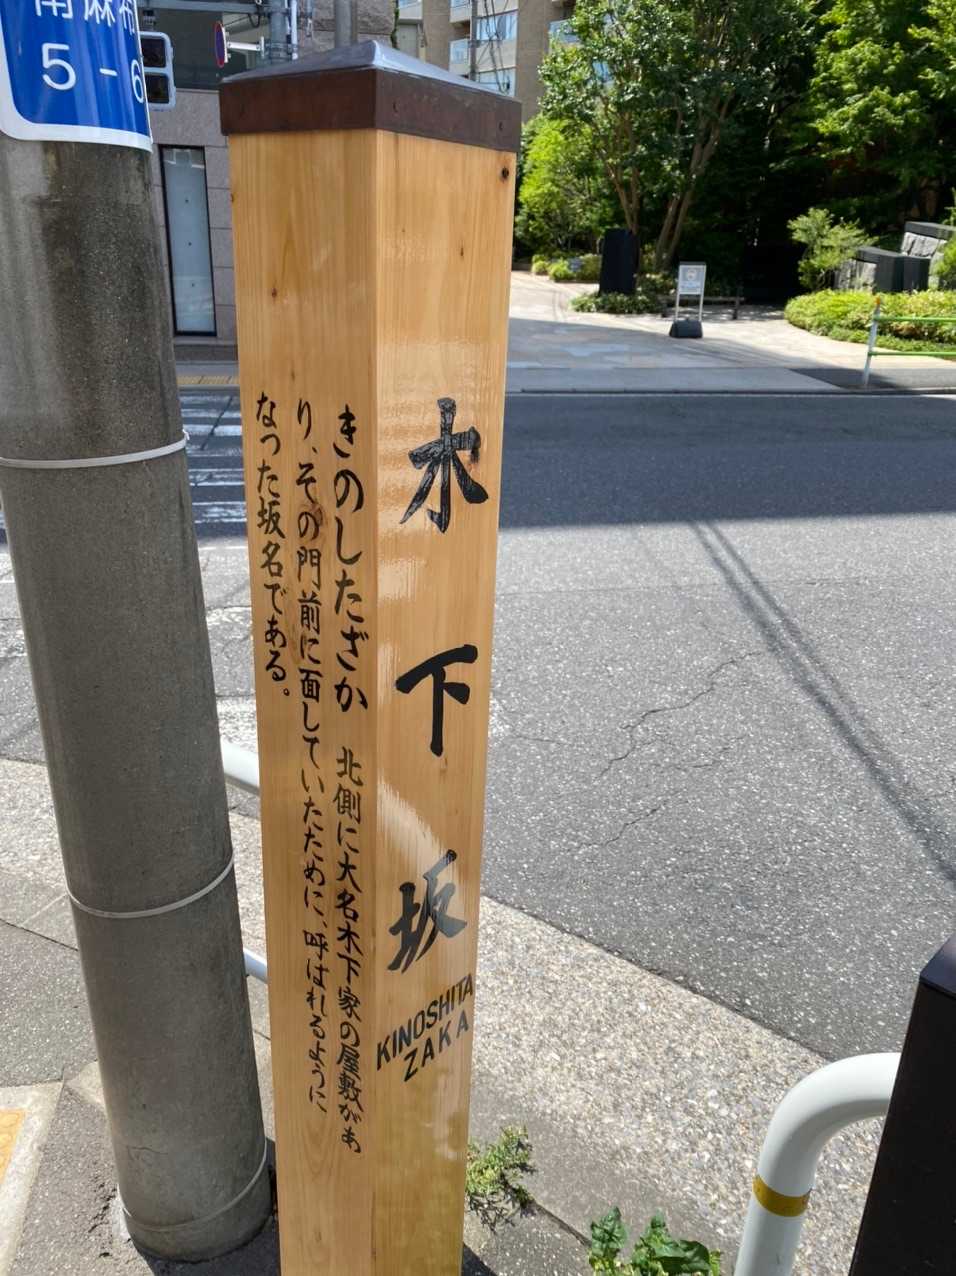 南麻布
5-6
木下坂
KINOSHITA
ZAKA
きのしたざか 北側に大名木下家の屋敷があ
り、その門前に面していたために、呼ばれるように
なった坂名である。